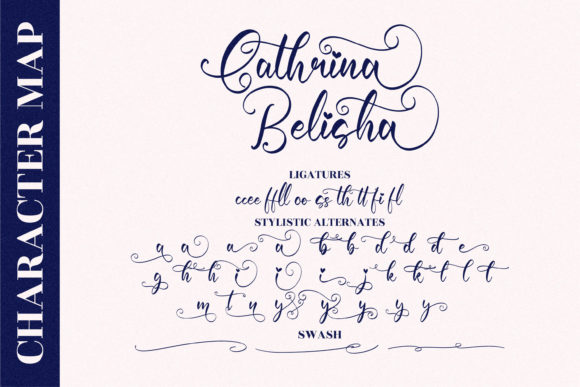 CHARACTER MAP
Cathrina
Belisha
LIGATURES
ccee ffll oo ss th tt fi fl
STYLISTIC ALTERNATES
a a a a b b d d t e
g h h i i i j k k l l t
m t u y y y y y y
SWASH